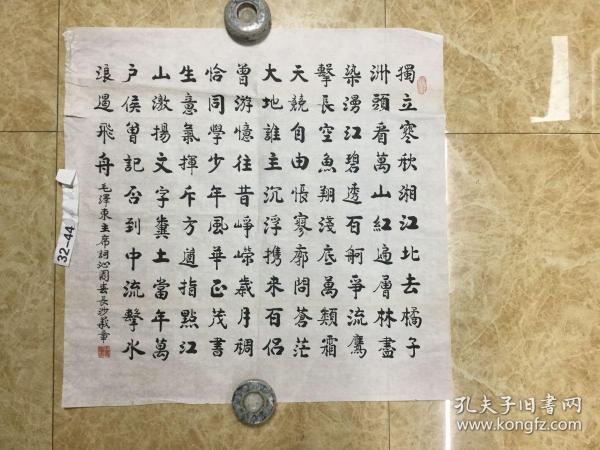 獨立寒秋湘江北去橘子
洲頭看萬山紅遍層林盡
染漫江碧透百舸爭流鷹
擊長空魚翔淺底萬類霜
天競自由悵寥廓問蒼茫
大地誰主沉浮携來百侶
曾游憶往昔崢嶸歲月稠
恰同學少年風華正茂書
生意氣揮斥方遒指點江
山激揚文字糞土當年萬
户侯曾記否到中流擊水
浪遏飛舟
毛澤東主席詞沁園春長沙
32-44
孔夫子旧书网
www.kongfz.com